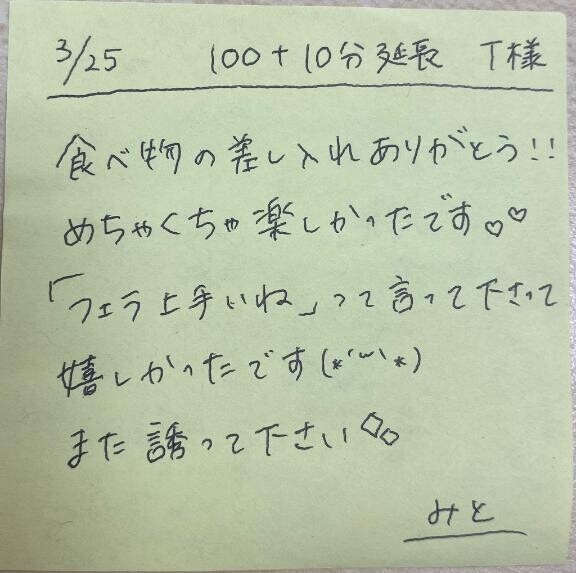 3/25 100+10分延長 T様
食べ物の差し入れありがとう!!
めちゃくちゃ楽しかったです♡♡
「フェラ上手いね」って言って下さって
嬉しかったです(*´ω`*)
また誘って下さい◇◇
みと